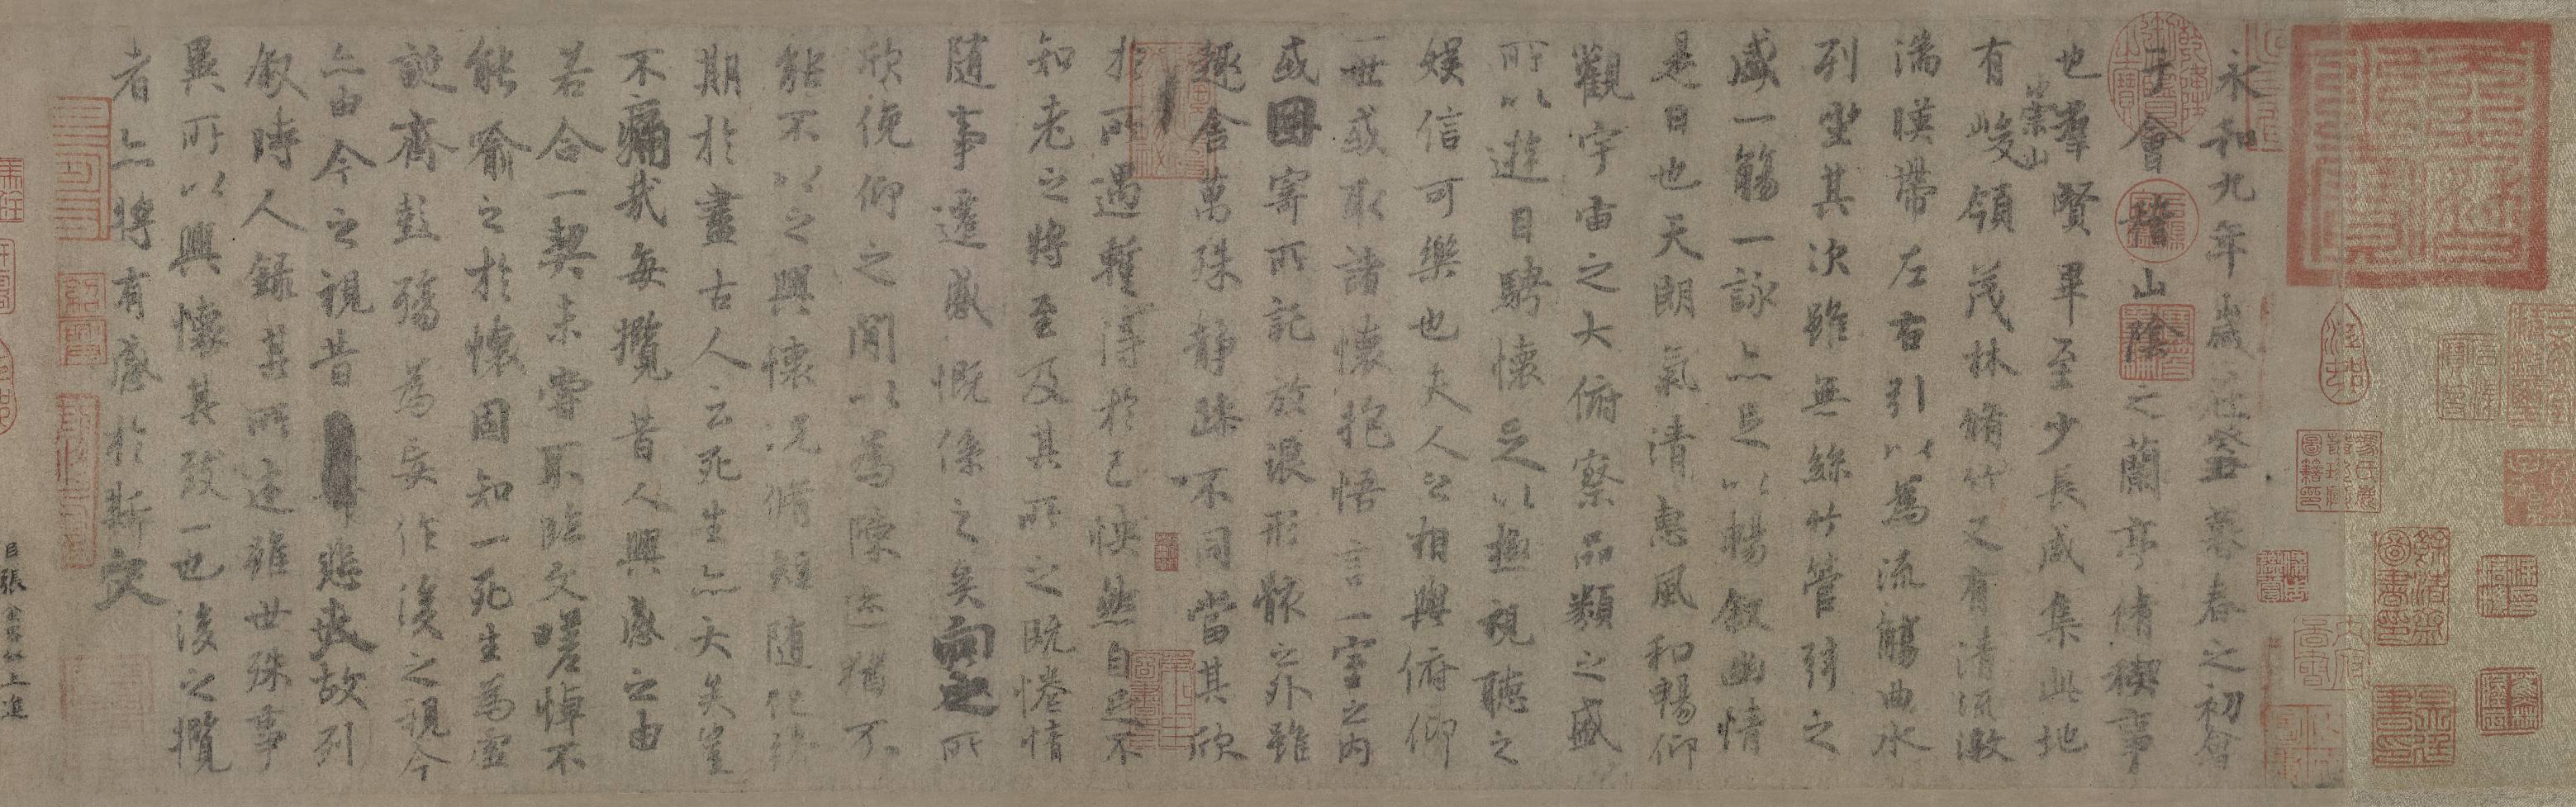 永和九年歲在癸丑暮春之初會
于會稽山陰之蘭亭脩稧事
也羣賢畢至少長咸集此地
有崇山峻領茂林脩竹又有清流激
湍暎帶左右引以為流觴曲水
列坐其次雖無絲竹管弦之
盛一觴一詠亦足以暢叙幽情
是日也天朗氣清惠風和暢仰
觀宇宙之大俯察品類之盛
所以遊目騁懷足以極視聽之
娛信可樂也夫人之相與俯仰
一世或取諸懷抱悟言一室之內
或因寄所託放浪形骸之外雖
趣舍萬殊靜躁不同當其欣
於所遇暫得於己怏然自足不
知老之將至及其所之既惓情
隨事遷感慨係之矣向之所
欣俛仰之閒以為陳迹猶不
能不以之興懷況脩短隨化終
期於盡古人云死生亦大矣豈
不痛哉每攬昔人興感之由
若合一契未嘗不臨文嗟悼不
能喻之於懷固知一死生為虛
誕齊彭殤為妄作後之視今
亦由今之視昔悲夫故列
叙時人錄其所述雖世殊事
異所以興懷其致一也後之攬
者亦將有感於斯文
臣張金界奴上進